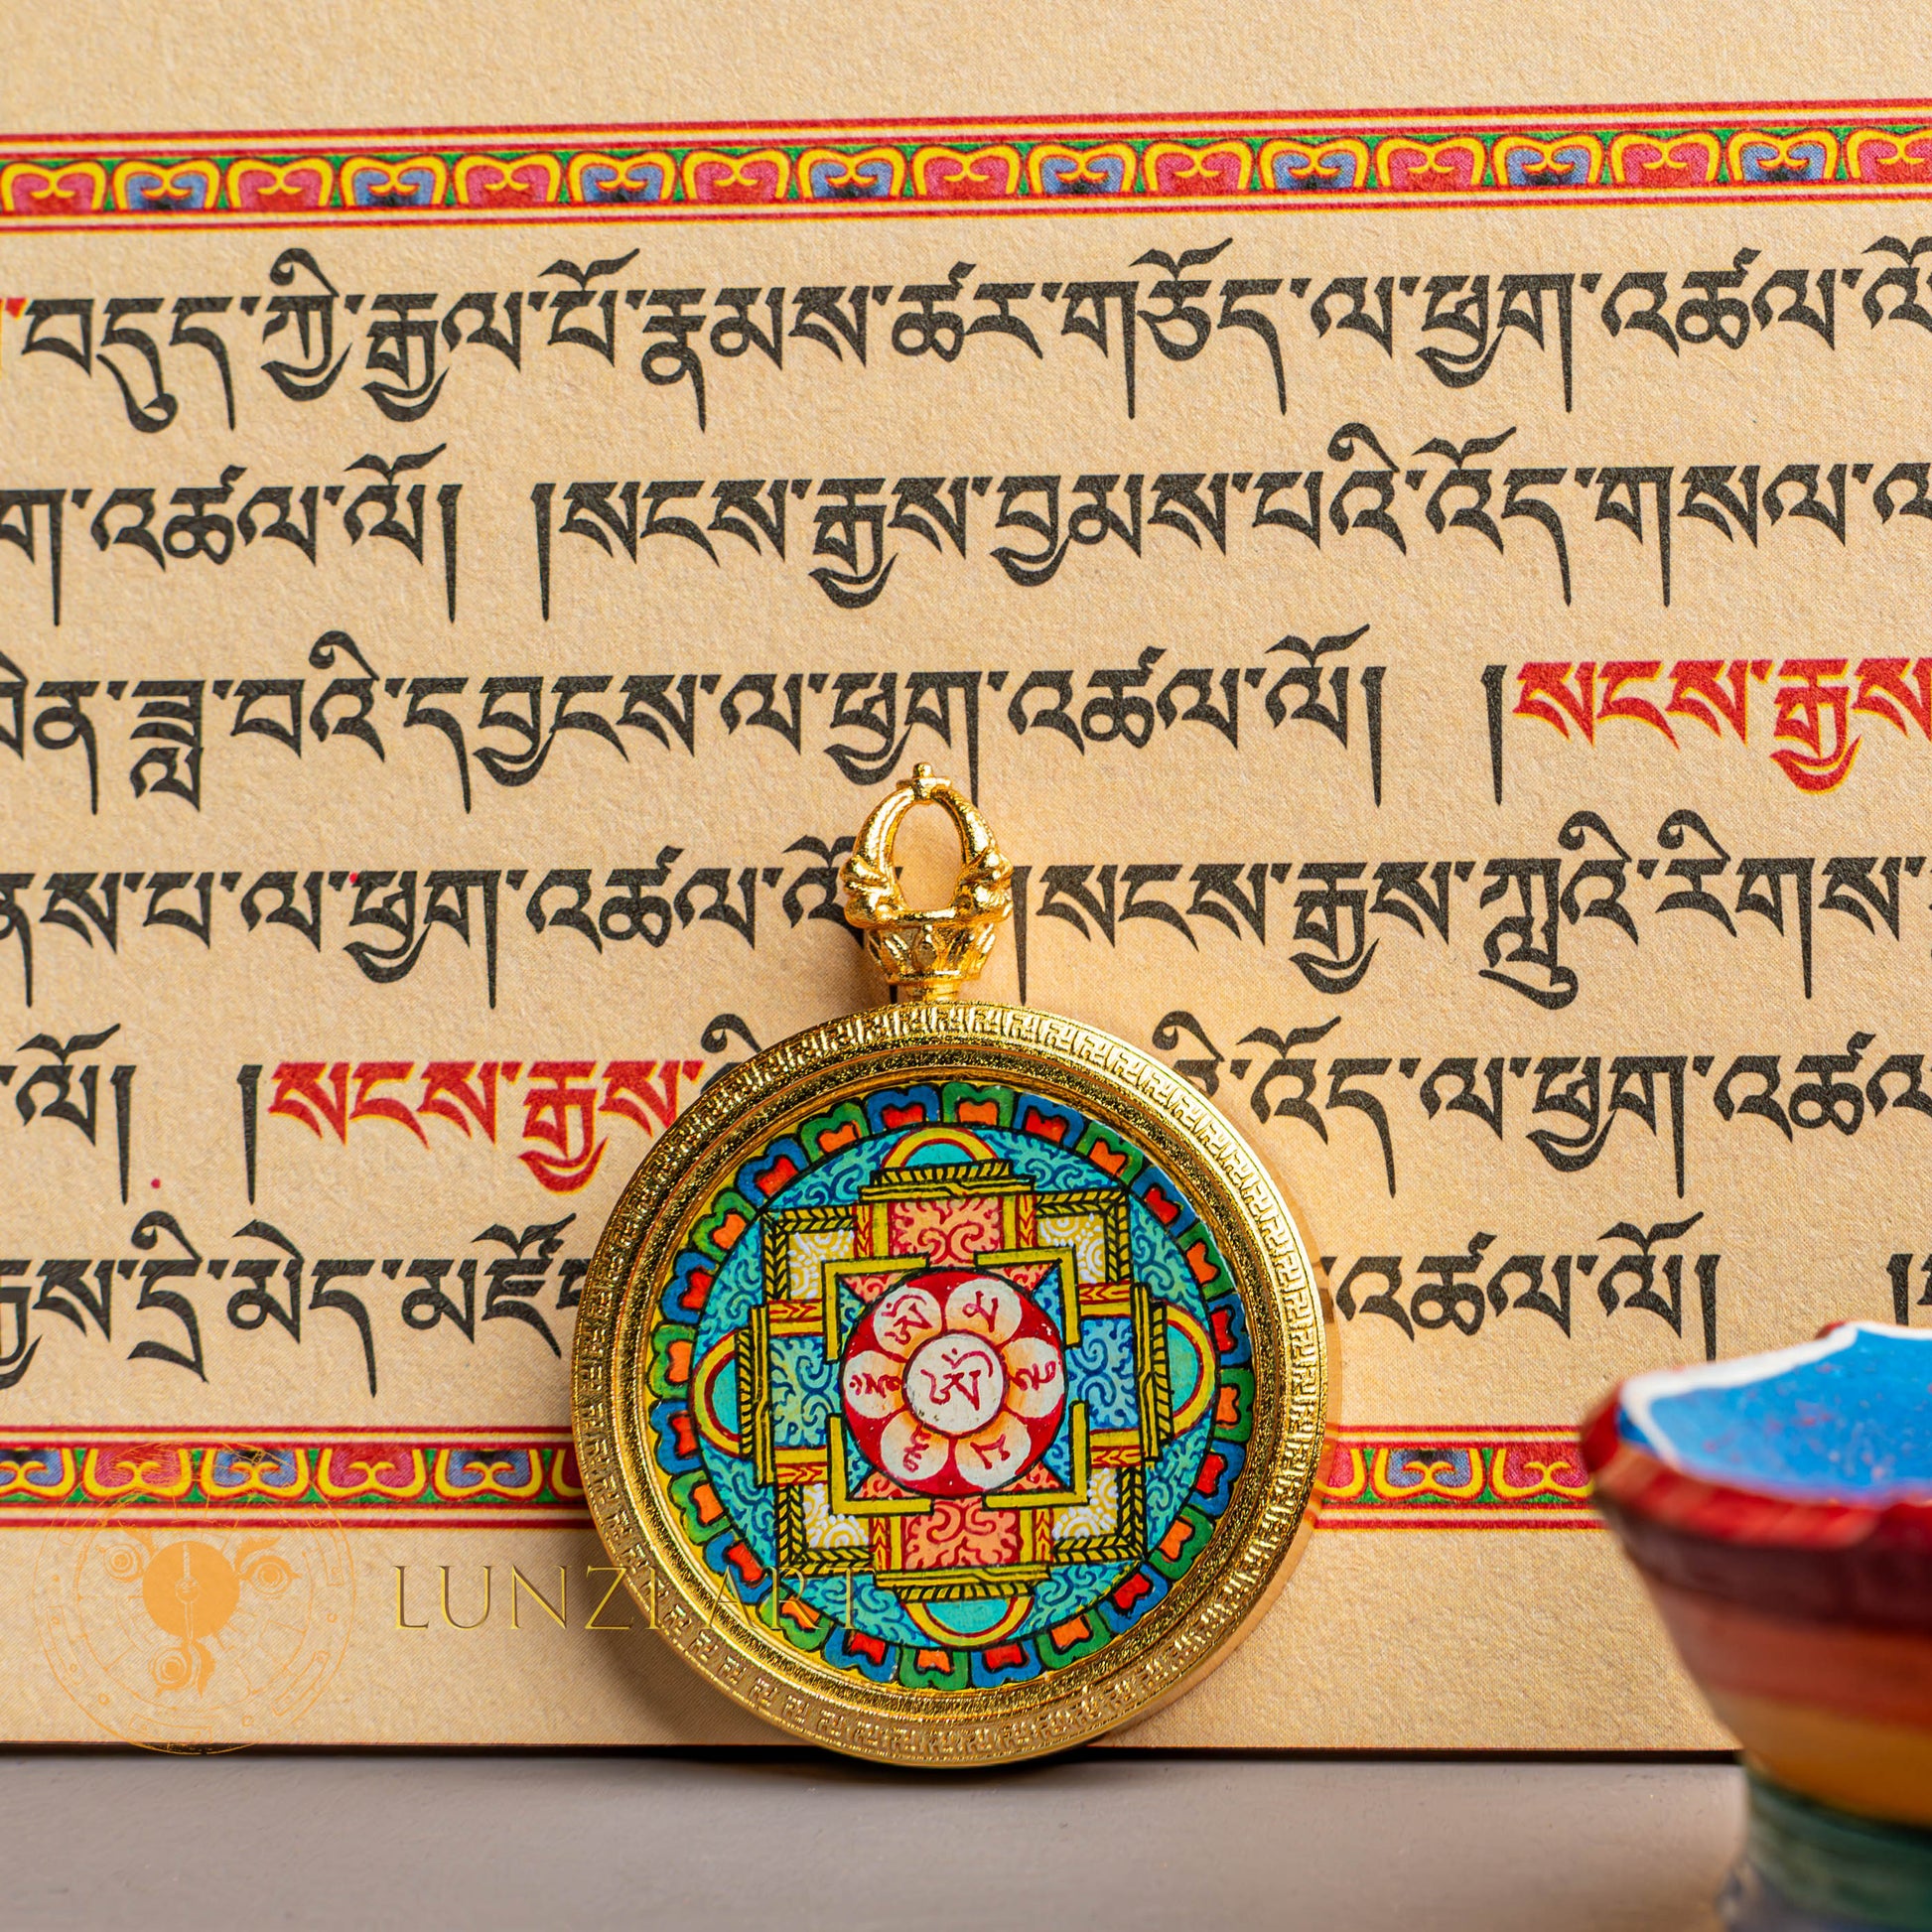 བདུད་ཀྱི་རྒྱལ་པོ་རྣམས་ཚར་གཅོད་ལ་ཕྱག་འཚལ་ལོ
འཚལ་ལོ། །སངས་རྒྱས་བྱམས་པའི་འོད་གསལ་ལ
ཟླ་བའི་དབྱངས་ལ་ཕྱག་འཚལ་ལོ། །སངས་རྒྱས
པ་ལ་ཕྱག་འཚལ་ལོ །སངས་རྒྱས་ཀླུའི་རིགས་
ལོ། །སངས་རྒྱས་ འོད་ལ་ཕྱག་འཚལ
རྒྱས་དྲི་མེད་ འཚལ་ལོ། །
ཨོཾ
LUNZI ART